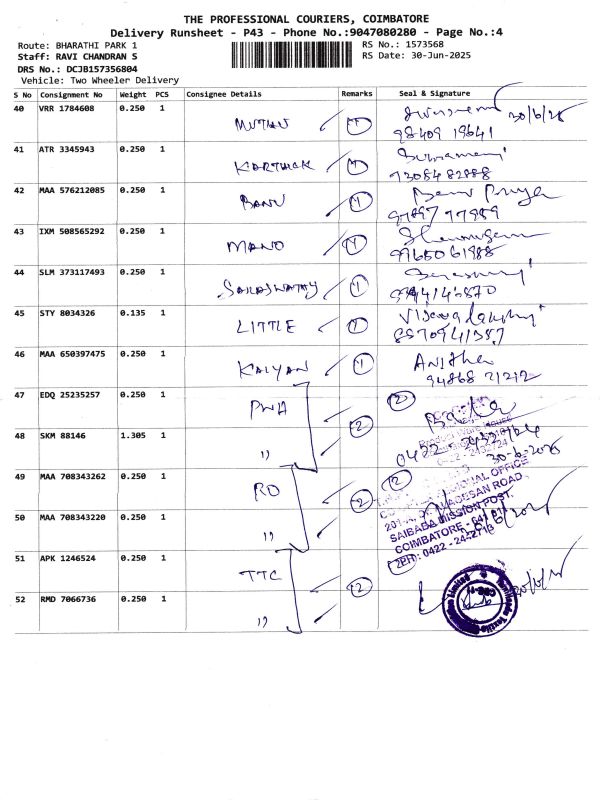 THE PROFESSIONAL COURIERS, COIMBATORE
Delivery Runsheet - P43 - Phone No.:9047080280 - Page No.:4
Route: BHARATHI PARK 1
RS No.: 1573568
Staff: RAVI CHANDRAN S
RS Date: 30-Jun-2025
DRS No.: DCJB157356804
Vehicle: Two Wheeler Delivery
S No Consignment No Weight PCS Consignee Details Remarks Seal & Signature
40 VRR 1784608 0.250 1 MUTHU 1 30/6/25
98409 19641
41 ATR 3345943 0.250 1 KARTHICK 1
73054 82888
42 MAA 576212085 0.250 1 BANU 1 Banu Priya
97897 77989
43 IXM 508565292 0.250 1 MANO 1
99650 61988
44 SLM 373117493 0.250 1 SARASWATHY 1
45 STY 8034326 0.135 1 LITTLE 1
46 MAA 650397475 0.250 1 KALYAN 1 ANITHA
94868 21212
47 EDQ 25235257 0.250 1 PWA 2
48 SKM 88146 1.305 1 " 2
30-6-2025
49 MAA 708343262 0.250 1 RO 2
REGIONAL OFFICE
50 MAA 708343220 0.250 1 " 2
SAIBABA MISSION POST.
COIMBATORE - 641 011
51 APK 1246524 0.250 1 TTC
52 RMD 7066736 0.250 1 " 2